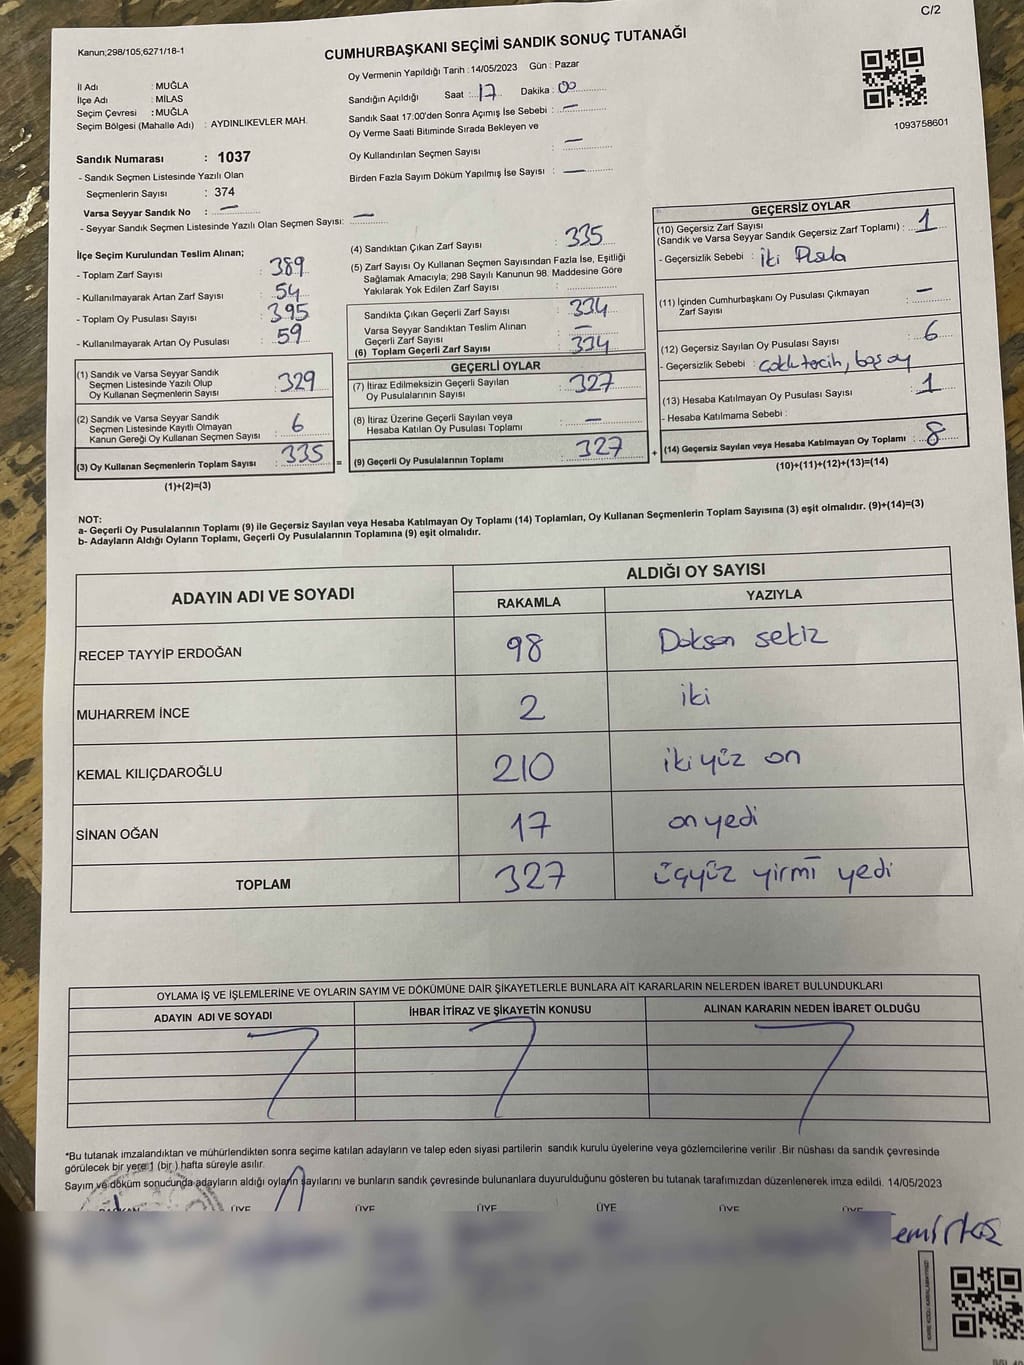 C/2
Kanun;298/105,6271/18-1
CUMHURBAŞKANI SEÇİMİ SANDIK SONUÇ TUTANAĞI
İl Adı : MUĞLA
İlçe Adı : MİLAS
Seçim Çevresi : MUĞLA
Seçim Bölgesi (Mahalle Adı) : AYDINLIKEVLER MAH.
Sandık Numarası : 1037
- Sandık Seçmen Listesinde Yazılı Olan
Seçmenlerin Sayısı : 374
Varsa Seyyar Sandık No : —
- Seyyar Sandık Seçmen Listesinde Yazılı Olan Seçmen Sayısı: —
Oy Vermenin Yapıldığı Tarih : 14/05/2023 Gün : Pazar
Sandığın Açıldığı Saat : 17 Dakika : 00
Sandık Saat 17:00'den Sonra Açımış İse Sebebi : —
Oy Verme Saati Bitiminde Sırada Bekleyen ve
Oy Kullandırılan Seçmen Sayısı : —
Birden Fazla Sayım Döküm Yapılmış İse Sayısı : —
1093758601
İlçe Seçim Kurulundan Teslim Alınan;
- Toplam Zarf Sayısı : 389
- Kullanılmayarak Artan Zarf Sayısı : 54
- Toplam Oy Pusulası Sayısı : 395
- Kullanılmayarak Artan Oy Pusulası : 59
(1) Sandık ve Varsa Seyyar Sandık
Seçmen Listesinde Yazılı Olup
Oy Kullanan Seçmenlerin Sayısı : 329
(2) Sandık ve Varsa Seyyar Sandık
Seçmen Listesinde Kayıtlı Olmayan
Kanun Gereği Oy Kullanan Seçmen Sayısı : 6
(3) Oy Kullanan Seçmenlerin Toplam Sayısı : 335 =
(1)+(2)=(3)
(4) Sandıktan Çıkan Zarf Sayısı : 335
(5) Zarf Sayısı Oy Kullanan Seçmen Sayısından Fazla İse, Eşitliği
Sağlamak Amacıyla; 298 Sayılı Kanunun 98. Maddesine Göre
Yakılarak Yok Edilen Zarf Sayısı :
Sandıkta Çıkan Geçerli Zarf Sayısı : 334
Varsa Seyyar Sandıktan Teslim Alınan
Geçerli Zarf Sayısı : —
(6) Toplam Geçerli Zarf Sayısı : 334
GEÇERLİ OYLAR
(7) İtiraz Edilmeksizin Geçerli Sayılan
Oy Pusulalarının Sayısı : 327
(8) İtiraz Üzerine Geçerli Sayılan veya
Hesaba Katılan Oy Pusulası Toplamı : —
(9) Geçerli Oy Pusulalarının Toplamı : 327 +
GEÇERSİZ OYLAR
(10) Geçersiz Zarf Sayısı
(Sandık ve Varsa Seyyar Sandık Geçersiz Zarf Toplamı) : 1
- Geçersizlik Sebebi : iki Pusula
(11) İçinden Cumhurbaşkanı Oy Pusulası Çıkmayan
Zarf Sayısı : —
(12) Geçersiz Sayılan Oy Pusulası Sayısı : 6
- Geçersizlik Sebebi : çoklu tercih, boş oy
(13) Hesaba Katılmayan Oy Pusulası Sayısı : 1
- Hesaba Katılmama Sebebi :
(14) Geçersiz Sayılan veya Hesaba Katılmayan Oy Toplamı : 8
(10)+(11)+(12)+(13)=(14)
NOT:
a- Geçerli Oy Pusulalarının Toplamı (9) ile Geçersiz Sayılan veya Hesaba Katılmayan Oy Toplamı (14) Toplamları, Oy Kullanan Seçmenlerin Toplam Sayısına (3) eşit olmalıdır. (9)+(14)=(3)
b- Adayların Aldığı Oyların Toplamı, Geçerli Oy Pusulalarının Toplamına (9) eşit olmalıdır.
ADAYIN ADI VE SOYADI
ALDIĞI OY SAYISI
RAKAMLA YAZIYLA
RECEP TAYYİP ERDOĞAN 98 Doksan sekiz
MUHARREM İNCE 2 iki
KEMAL KILIÇDAROĞLU 210 iki yüz on
SİNAN OĞAN 17 on yedi
TOPLAM 327 üçyüz yirmi yedi
OYLAMA İŞ VE İŞLEMLERİNE VE OYLARIN SAYIM VE DÖKÜMÜNE DAİR ŞİKAYETLERLE BUNLARA AİT KARARLARIN NELERDEN İBARET BULUNDUKLARI
ADAYIN ADI VE SOYADI İHBAR İTİRAZ VE ŞİKAYETİN KONUSU ALINAN KARARIN NEDEN İBARET OLDUĞU
*Bu tutanak imzalandıktan ve mühürlendikten sonra seçime katılan adayların ve talep eden siyasi partilerin sandık kurulu üyelerine veya gözlemcilerine verilir .Bir nüshası da sandık çevresinde
görülecek bir yere 1 (bir ) hafta süreyle asılır.
Sayım ve döküm sonucunda adayların aldığı oyların sayılarını ve bunların sandık çevresinde bulunanlara duyurulduğunu gösteren bu tutanak tarafımızdan düzenlenerek imza edildi. 14/05/2023
BAŞKAN ÜYE ÜYE ÜYE ÜYE ÜYE ÜYE